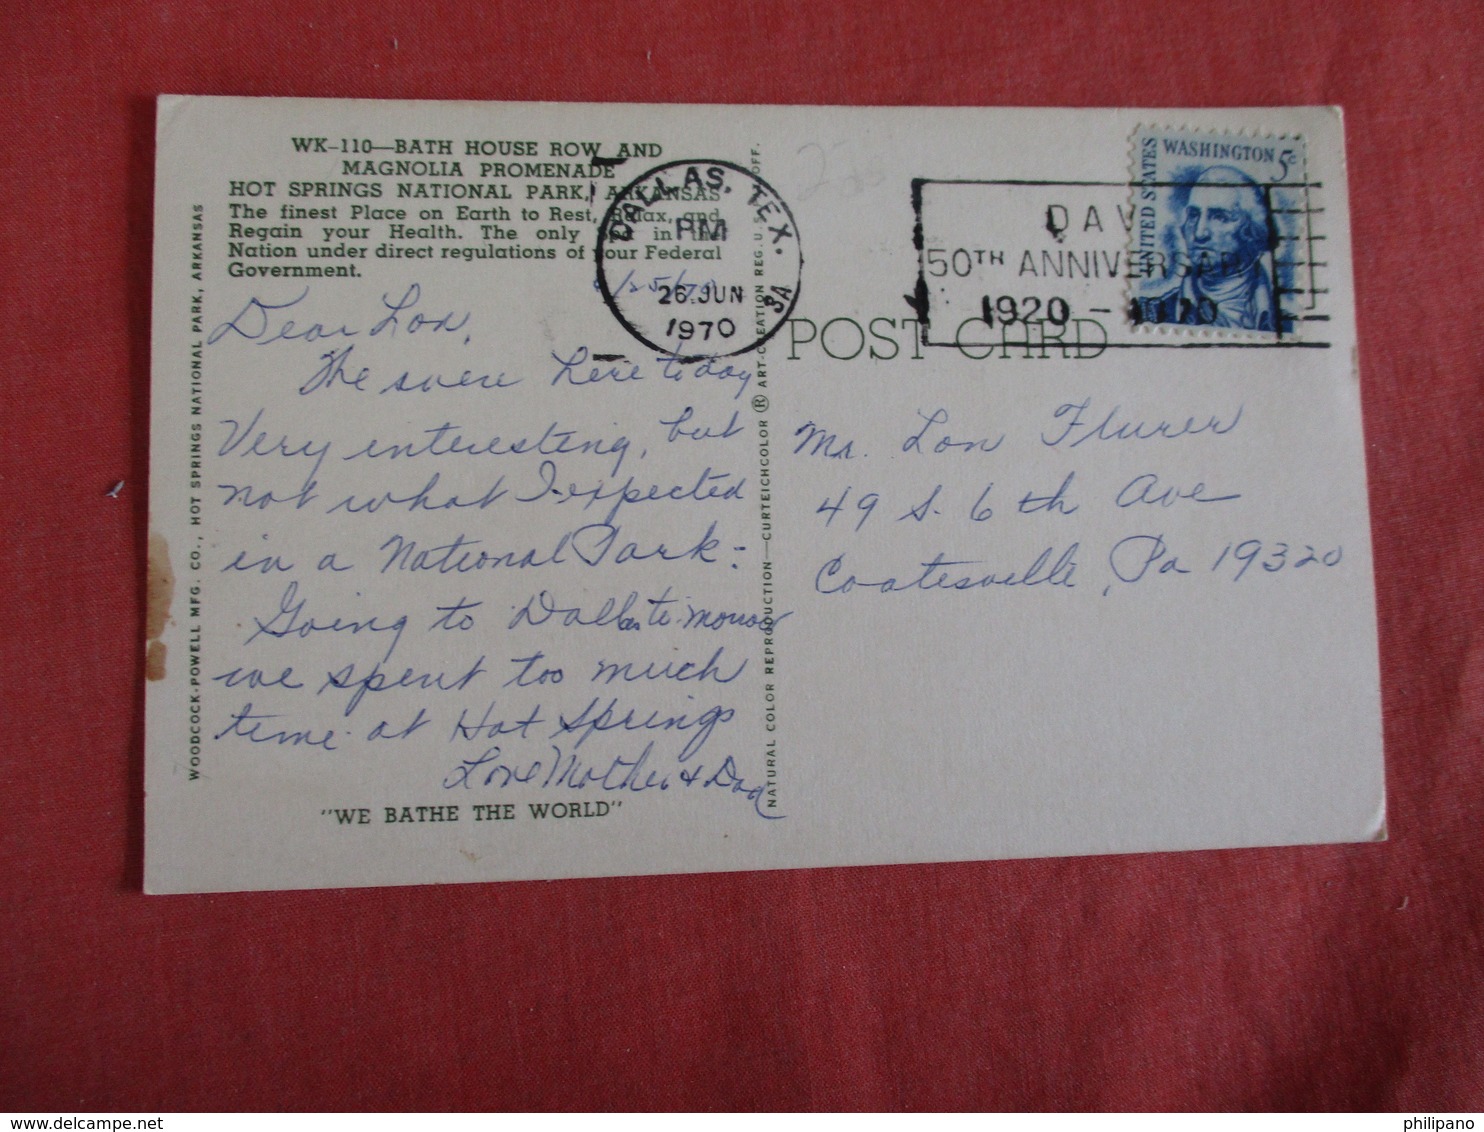 WK-110—BATH HOUSE ROW AND
MAGNOLIA PROMENADE
HOT SPRINGS NATIONAL PARK, ARKANSAS
The finest Place on Earth to Rest, Relax, and
Regain your Health. The only Spa in the
Nation under direct regulations of your Federal
Government.
6/25/70
Dear Lon,
The were here today
Very interesting, but
not what I expected
in a National Park -
Going to Dallas to-morrow
we spent too much
time at Hot Springs
Love Mother & Dad
"WE BATHE THE WORLD"
WOODCOCK-POWELL MFG. CO., HOT SPRINGS NATIONAL PARK, ARKANSAS
NATURAL COLOR REPRODUCTION—CURTEICHCOLOR ® ART-CREATION REG. U.S. OFF.
DALLAS, TEX.
PM
26 JUN
1970
3A
DAV
50TH ANNIVERSARY
1920 - 1970
UNITED STATES
WASHINGTON 5c
POST CARD
Mr. Lon Flurer
49 S. 6th Ave
Coatesville, Pa 19320
philipano